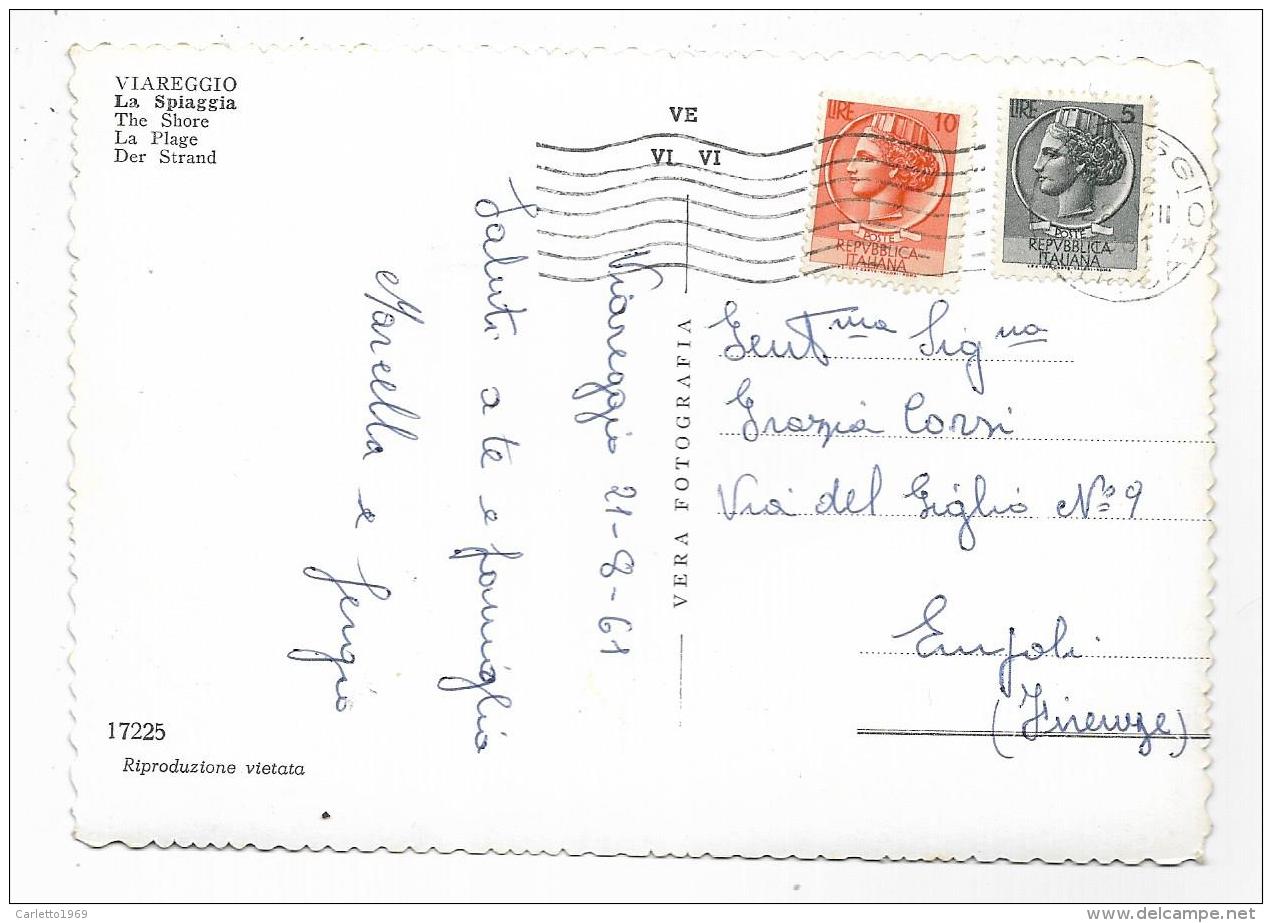 VIAREGGIO
La Spiaggia
The Shore
La Plage
Der Strand
VE
VI VI
LIRE 10
POSTE
REPVBBLICA
ITALIANA
LIRE 5
POSTE
REPVBBLICA
ITALIANA
Viareggio 21-8-61
Saluti a te e famiglia
Marella e Sergio
VERA FOTOGRAFIA
Gent.ma Sig.na
Grazia Corsi
Via del Giglio N° 9
Empoli
(Firenze)
17225
Riproduzione vietata
Carletto1969
www.delcampe.net